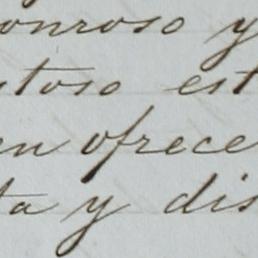 onroso y
stoso est
en ofrece
ta y dis